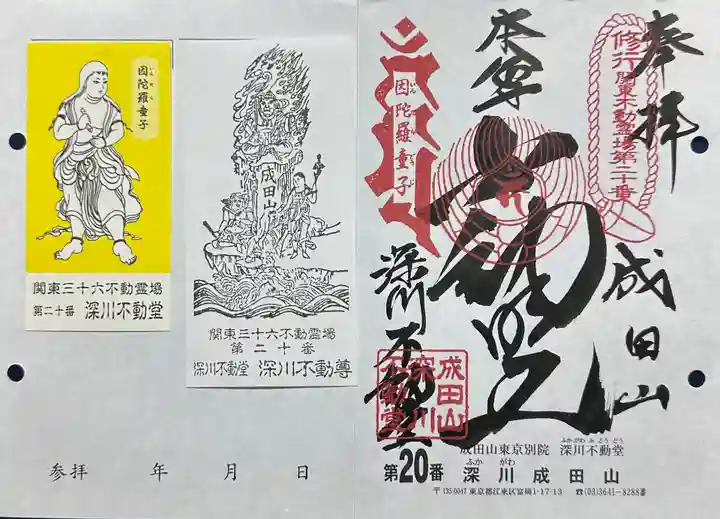 因陀羅童子
いんだらどうじ
関東三十六不動霊場
第二十番 深川不動堂
成田山
関東三十六不動霊場
第二十番
深川不動堂 深川不動尊
参拝 年 月 日
奉拝
修行
関東不動霊場第二十番
成田山
本尊
因陀羅童子
深川不動堂
成田山
深川
不動堂
成田山東京別院 深川不動堂
ふかがわふどうどう
第20番 深川成田山
ふかがわ
〒135-0047 東京都江東区富岡1-17-13 ☎(03)3641-8288番